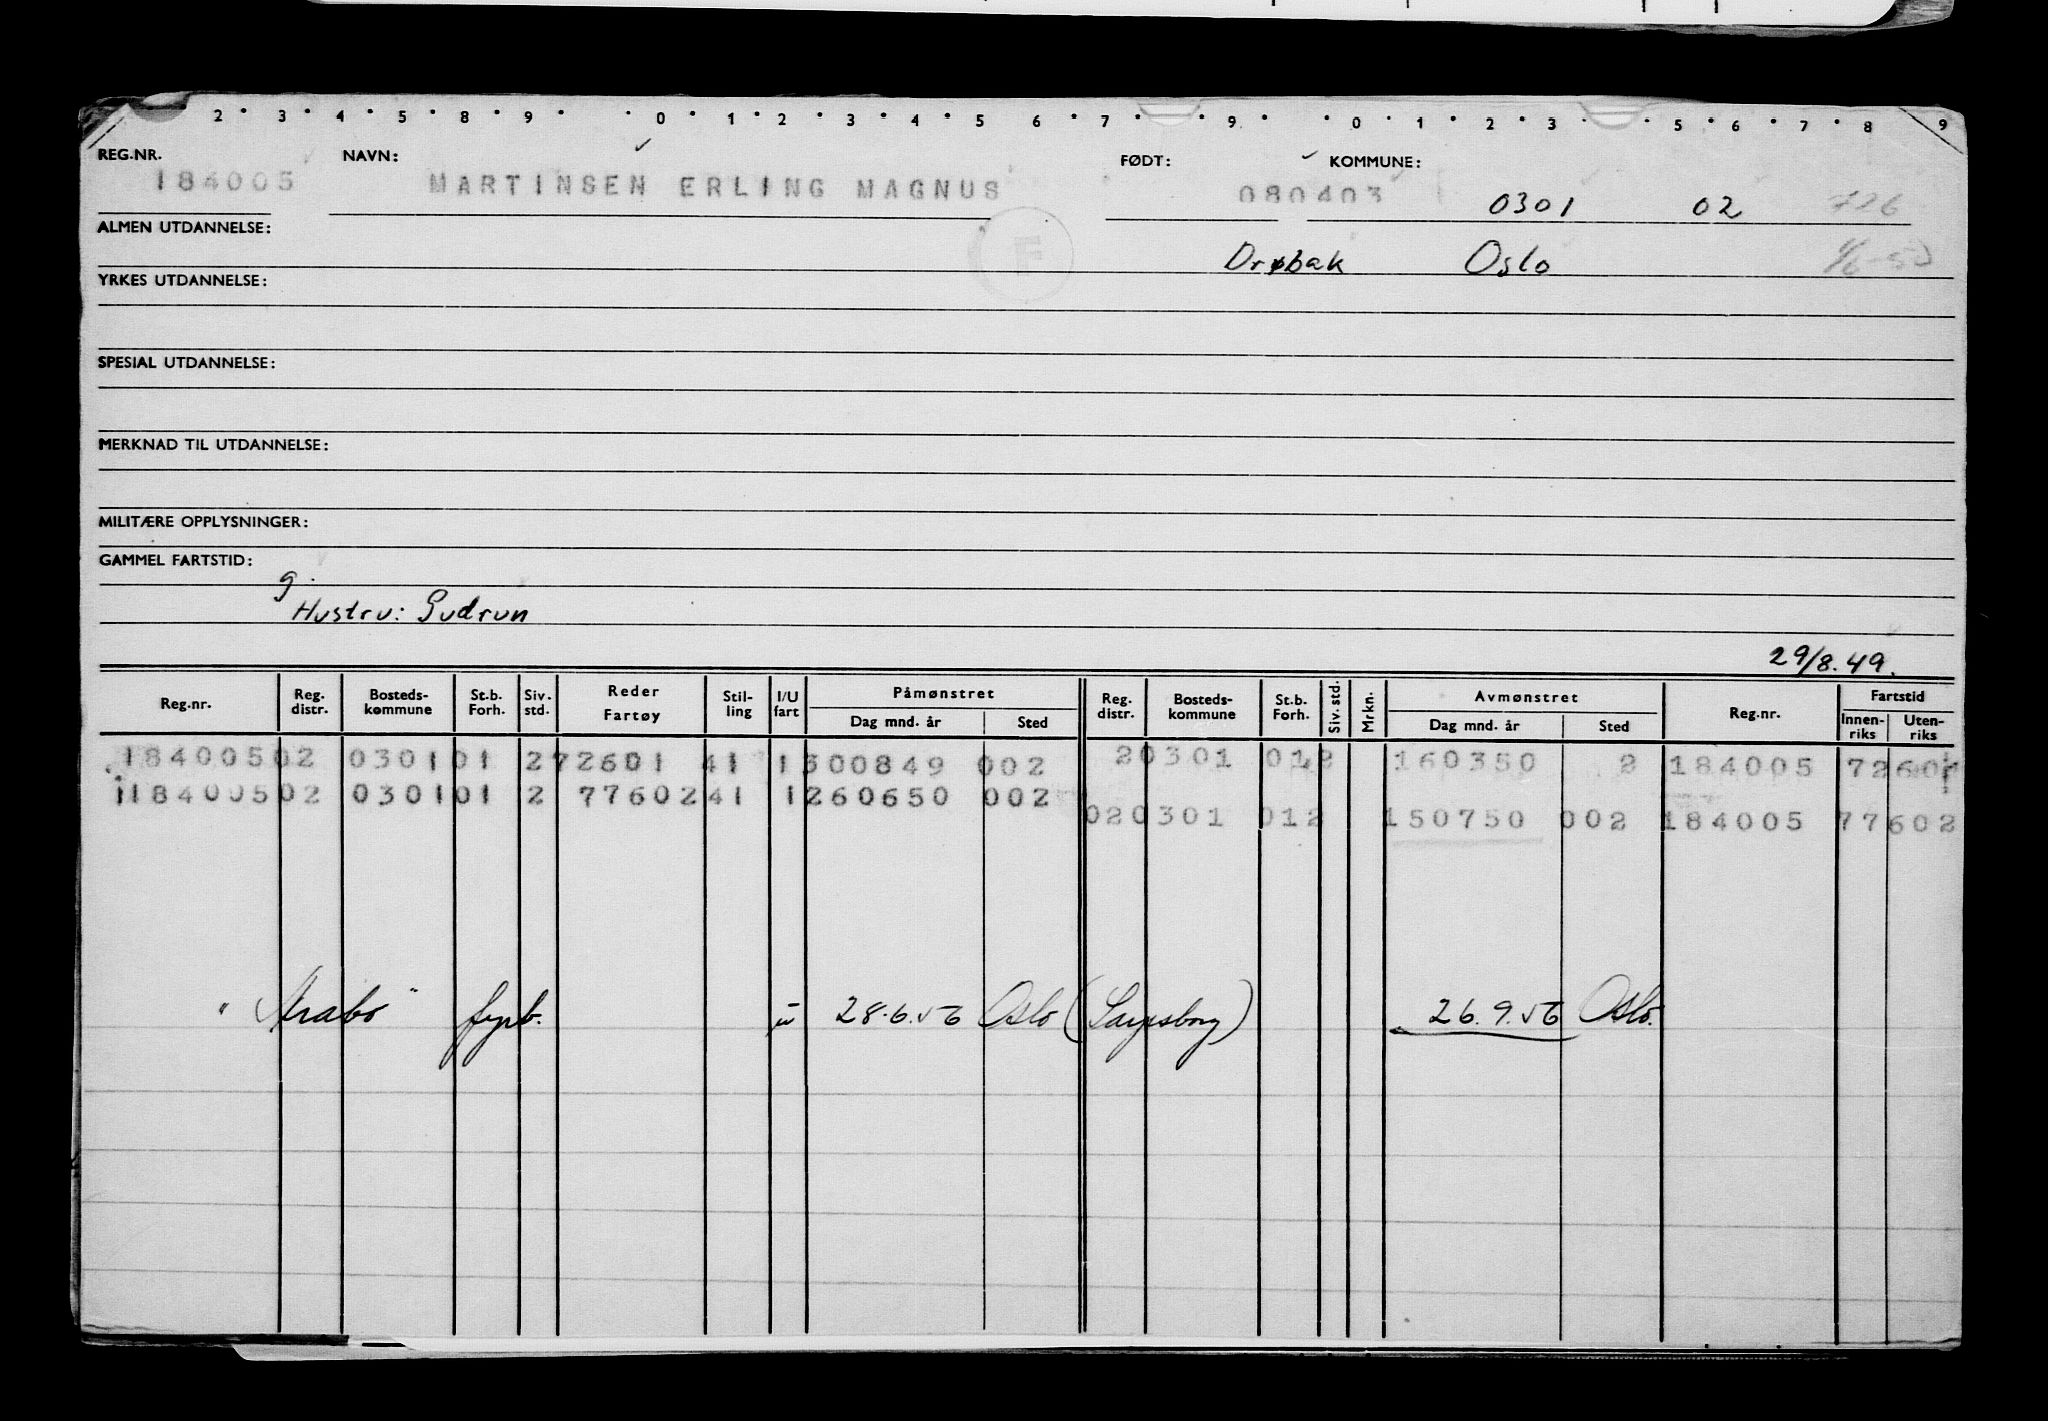 2 · 3 · 4 · 5 · 8 · 9 · · 0 · 1 · 2 · 3 · 4 · 5 6 · 7 · · 9 · · 0 · 1 · 2 · 3 · · 5 · 6 · 7 · 8 9
REG.NR. NAVN: FØDT: KOMMUNE:
184005 MARTINSEN ERLING MAGNUS 080403 0301 02 726
ALMEN UTDANNELSE:
F Drøbak Oslo
YRKES UTDANNELSE:
SPESIAL UTDANNELSE:
MERKNAD TIL UTDANNELSE:
MILITÆRE OPPLYSNINGER:
GAMMEL FARTSTID:
g.
Hustru: Gudrun
29/8.49.
Reg.nr. Reg. distr. Bosteds-kommune St.b. Forh. Siv. std. Reder Fartøy Stil-ling I/U fart Påmønstret Dag mnd. år Sted Reg. distr. Bosteds-kommune St.b. Forh. Siv. std. Mrkn. Avmønstret Dag mnd. år Sted Reg.nr. Fartstid Innen-riks Uten-riks
184005 02 0301 01 2 72601 41 1 300849 002 2 0301 012 160350 2 184005 72601
184005 02 0301 01 2 77602 41 1 260650 002
02 0301 012 150750 002 184005 77602
" " fyrb. u 28.6.56 Oslo (Sarpsborg) 26.9.56 Oslo.